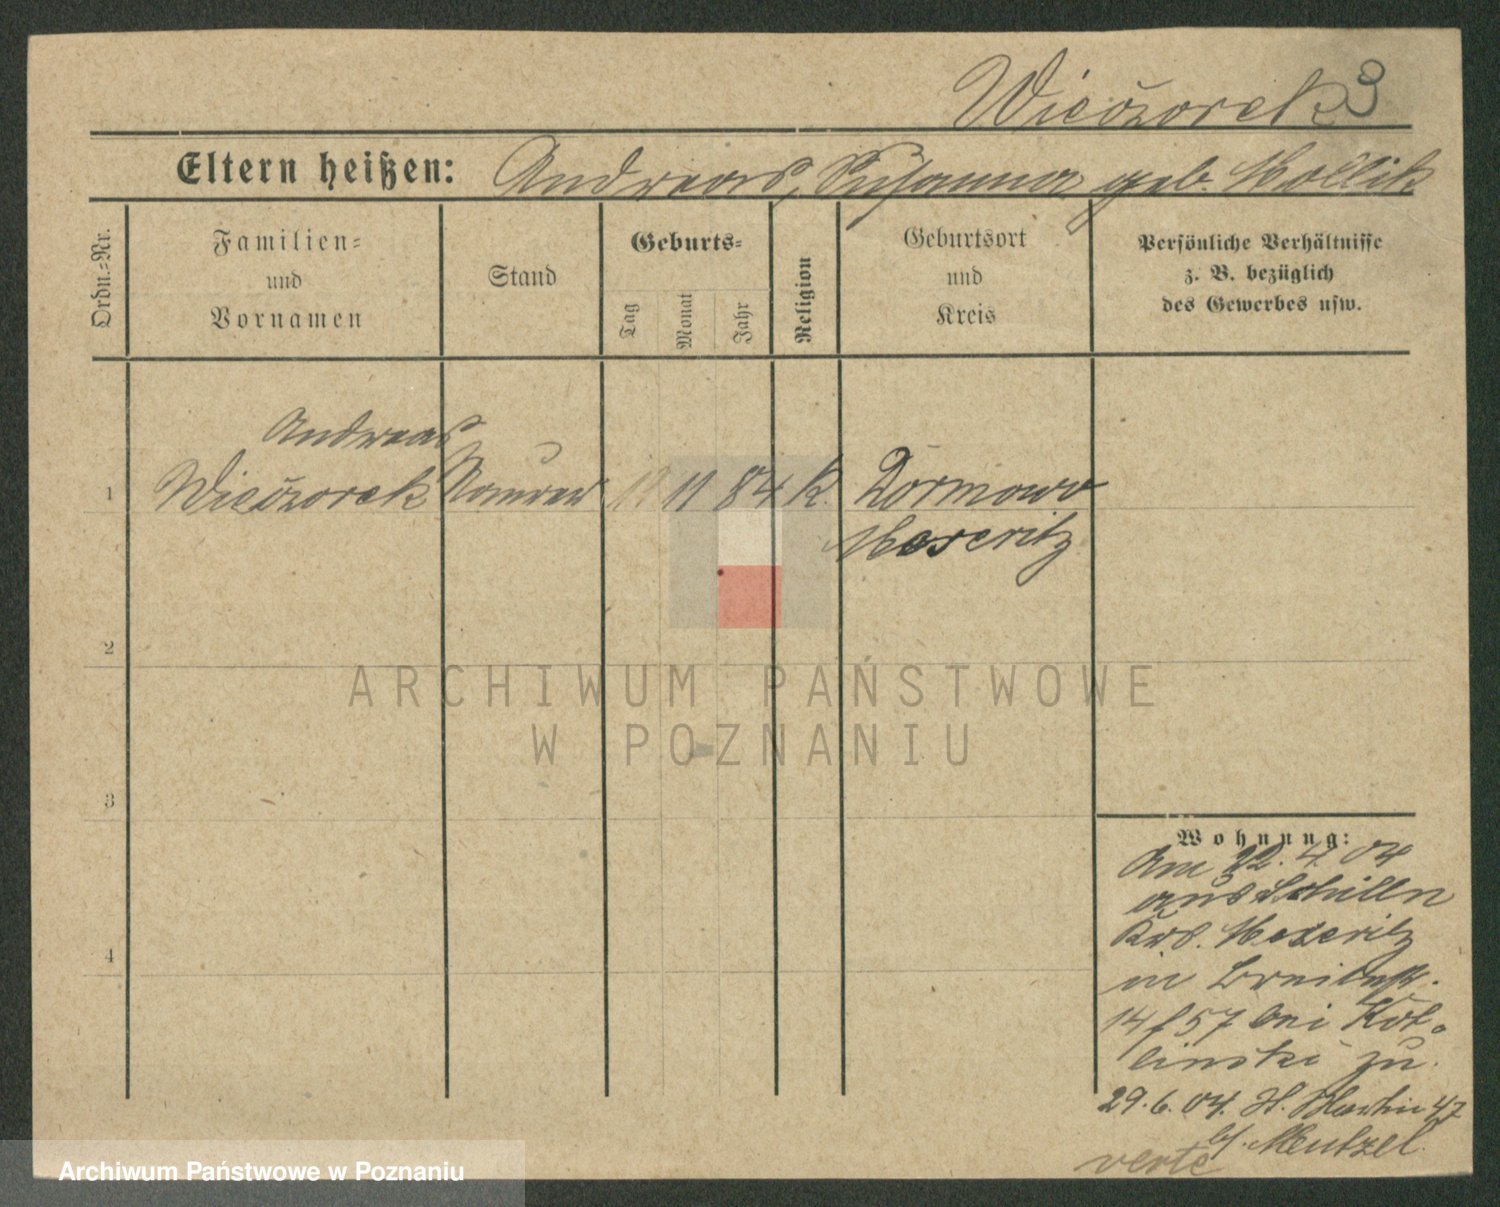 Wieczorek 3
Eltern heißen: Andreas, Susanna geb. Mollik
Ordn.-Nr.
Familien-
und
Vornamen
Stand
Geburts-
Tag
Monat
Jahr
Religion
Geburtsort
und
Kreis
Persönliche Verhältnisse
z. B. bezüglich
des Gewerbes usw.
Andreas
1 Wieczorek Maurer 11 84 K. Dormowo
Meseritz
2
3
4
ARCHIWUM PAŃSTWOWE
W POZNANIU
Wohnung:
Am 22. 4. 04
aus Schilln
Krs. Meseritz
in Breitestr.
14 f 57 bei Kot-
linski zu.
29. 6. 04. St. Martin 47
b/. Mentzel.
verte
Archiwum Państwowe w Poznaniu